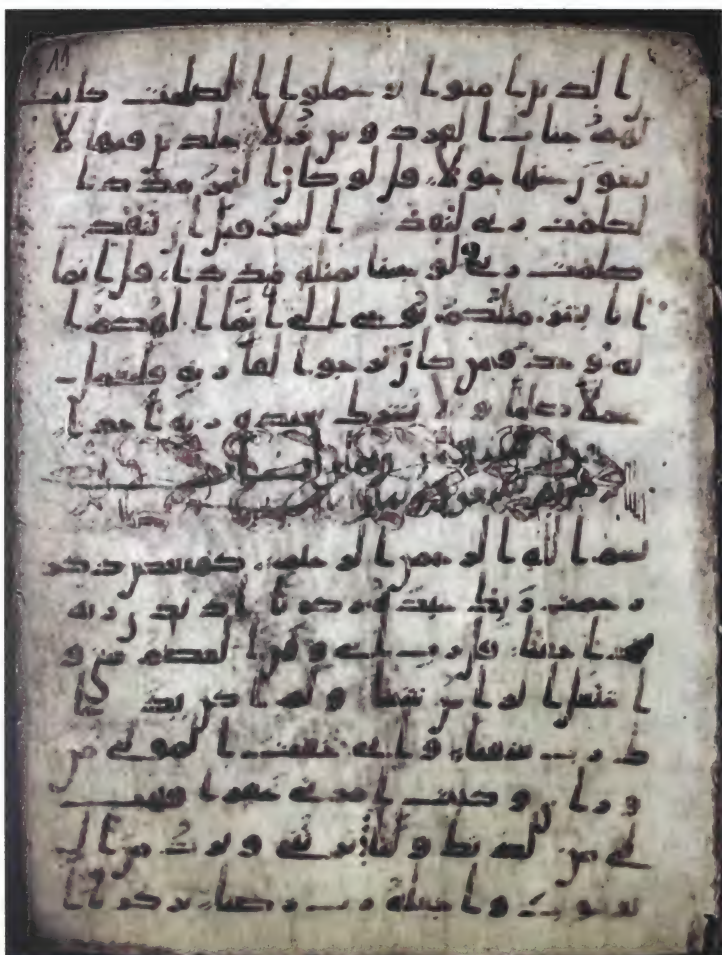 11
الذين امنوا وعملوا الصلحت كانت
لهم جنات الفردوس نزلا خلدين فيها لا
يبغون عنها حولا قل لو كان البحر مددا
لكلمت ربي لنفد البحر قبل ان تنفد
كلمت ربي ولو جئنا بمثله مددا قل انما
انا بشر مثلكم يوحى الي انما الهكم ا
له وحد فمن كان يرجوا لقا ربه فليعمل
عملا صلحا ولا يشرك بعبدة ربه احدا
بسم الله الرحمن الرحيم كهيعص ذكر
رحمت ربك عبده زكريا اذ نادى ربه
ندا خفيا قال رب اني وهن العظم مني و
اشتعل الراس شيبا ولم اكن بدعا
ك رب شقيا واني خفت المولي من
وراي وكانت امراتي عقرا فهب
لي من لدنك وليا يرثني ويرث من ال
يعقوب واجعله رب رضيا يزكريا ا